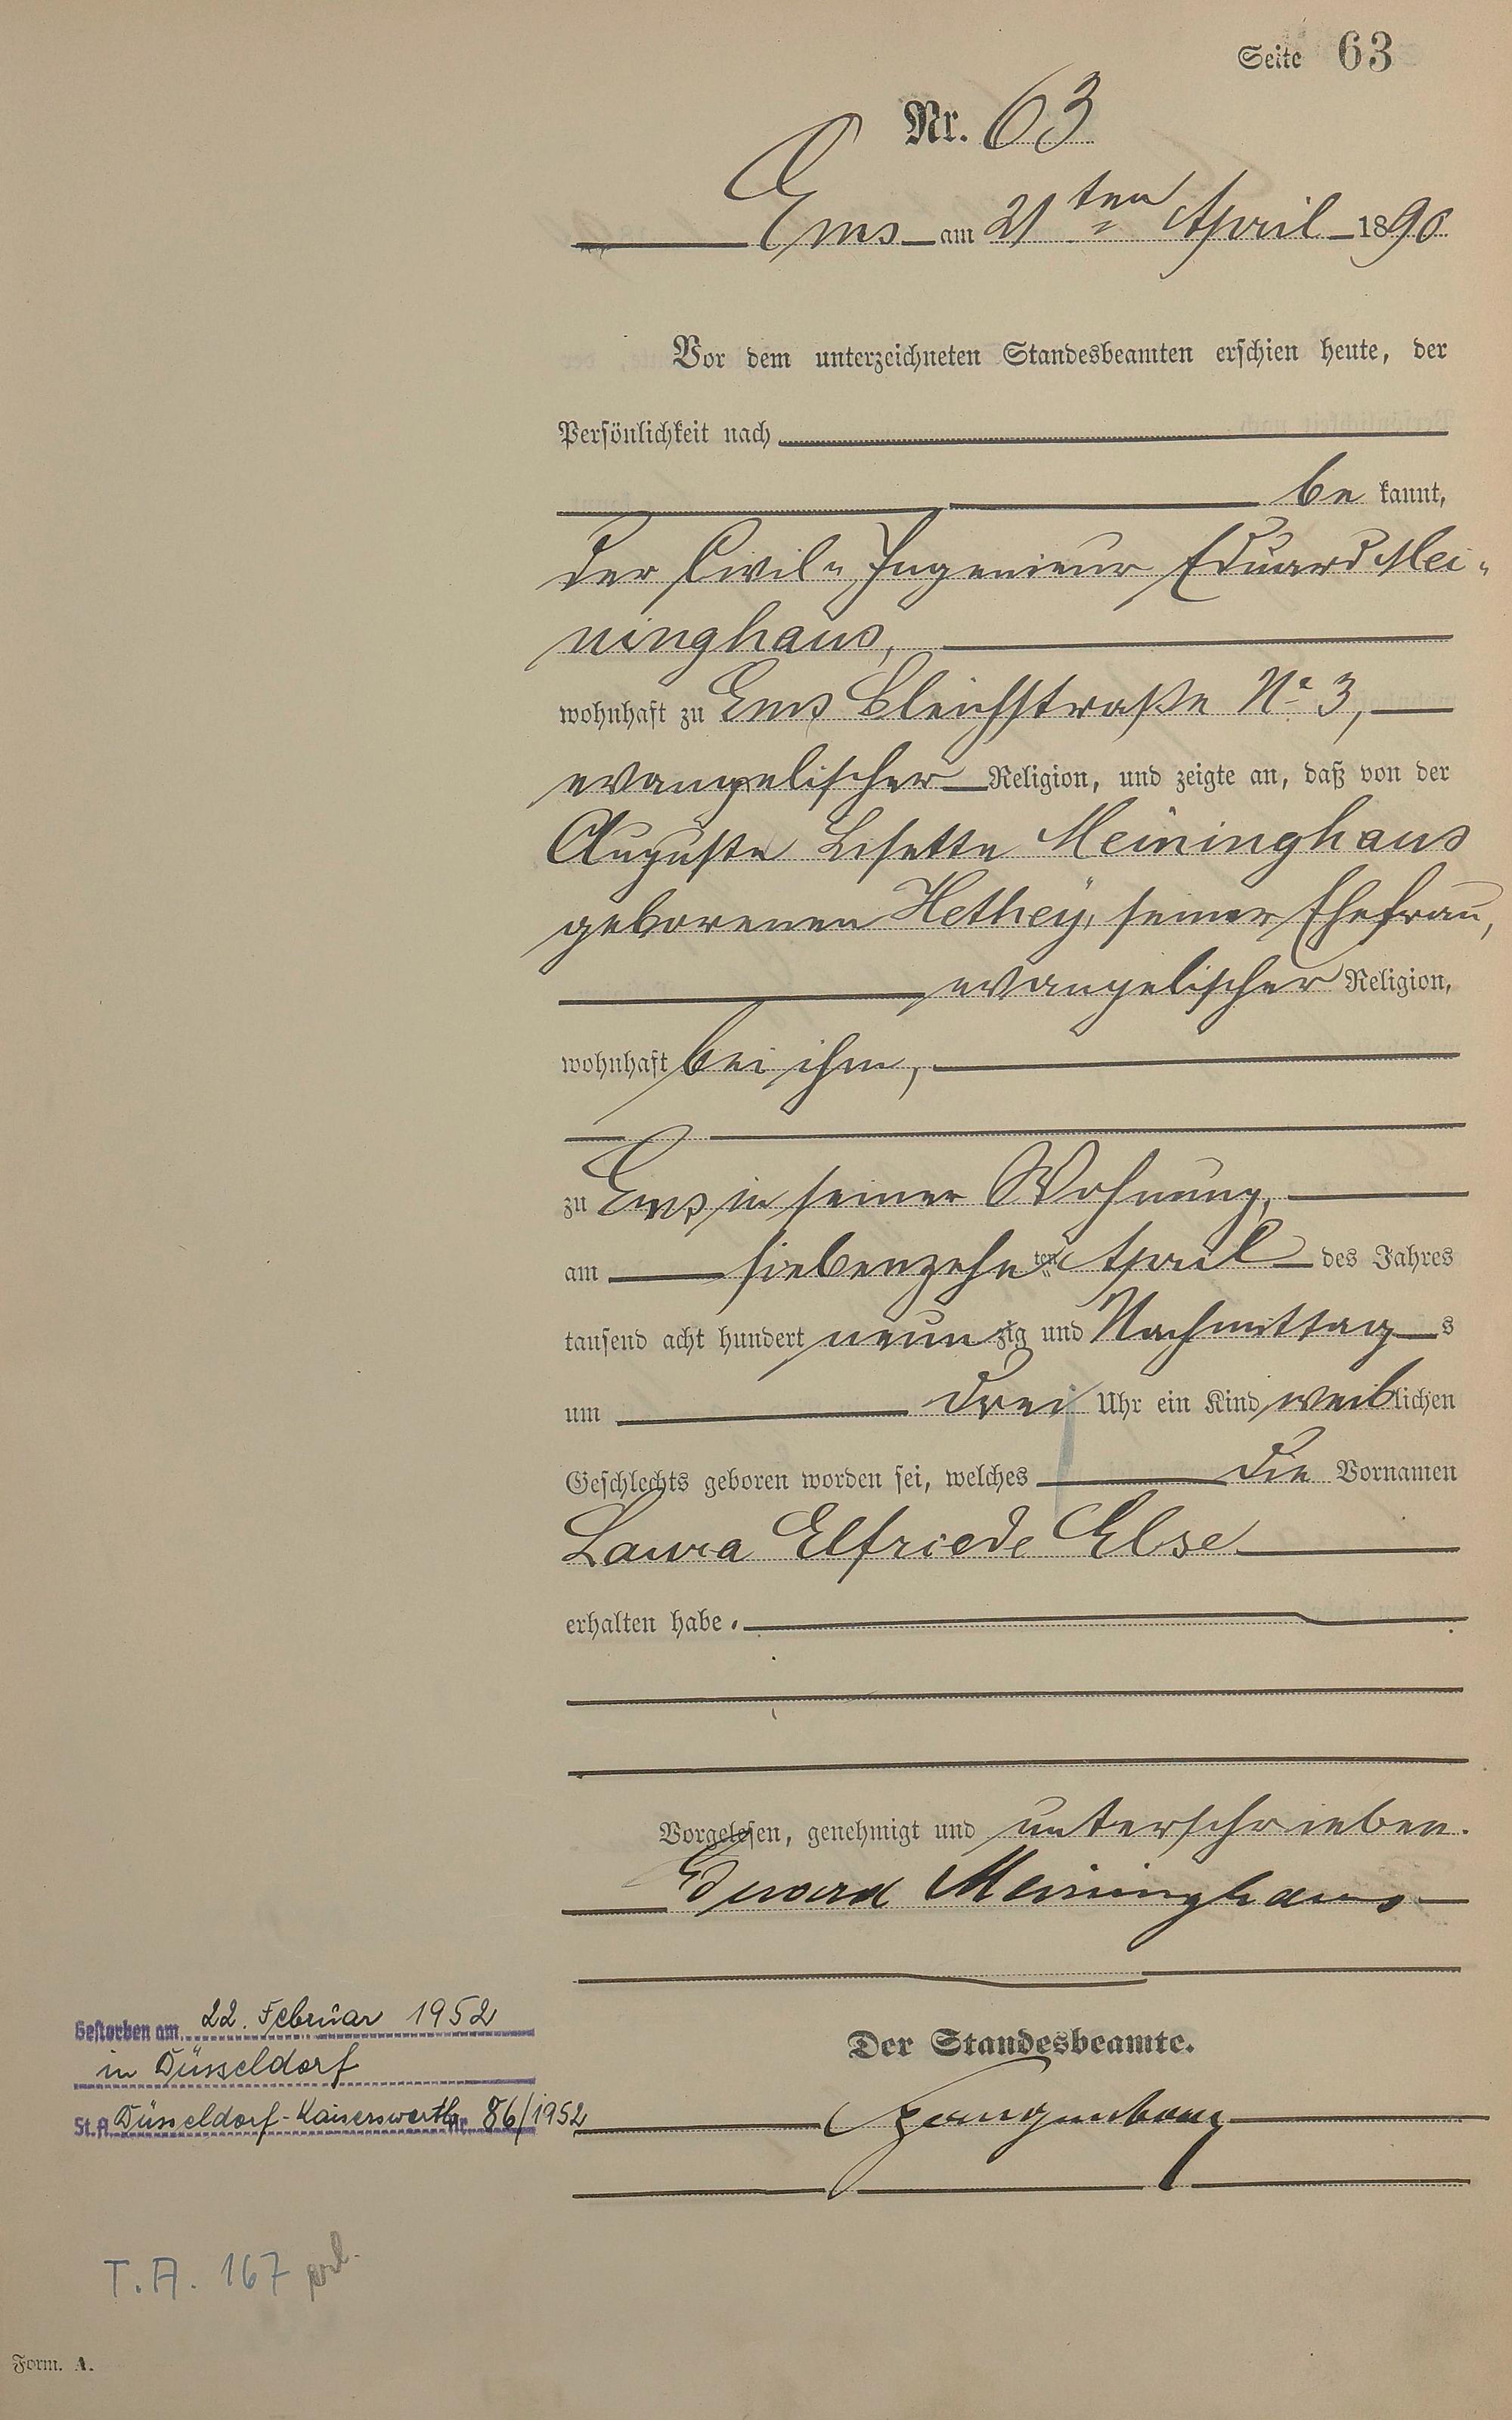 Seite 63
Nr. 63
Ems am 21ten April 1890
Vor dem unterzeichneten Standesbeamten erschien heute, der
Persönlichkeit nach
be kannt,
der Civil-Ingenieur Eduard Mei-
ninghaus,
wohnhaft zu Ems Bleichstraße No 3,
evangelischer Religion, und zeigte an, daß von der
Auguste Lisette Meininghaus
geborenen Hethey, seiner Ehefrau,
evangelischer Religion,
wohnhaft bei ihm,
zu Ems in seiner Wohnung,
am siebenzehnten April des Jahres
tausend acht hundert neunzig und Nachmittags
um drei Uhr ein Kind weiblichen
Geschlechts geboren worden sei, welches die Vornamen
Laura Elfriede Else
erhalten habe.
Vorgelesen, genehmigt und unterschrieben.
Eduard Meininghaus
Der Standesbeamte.
Gestorben am 22. Februar 1952
in Düsseldorf
St.A. Düsseldorf-Kaiserswerth Nr. 86/1952
T.A. 167
Form. A.